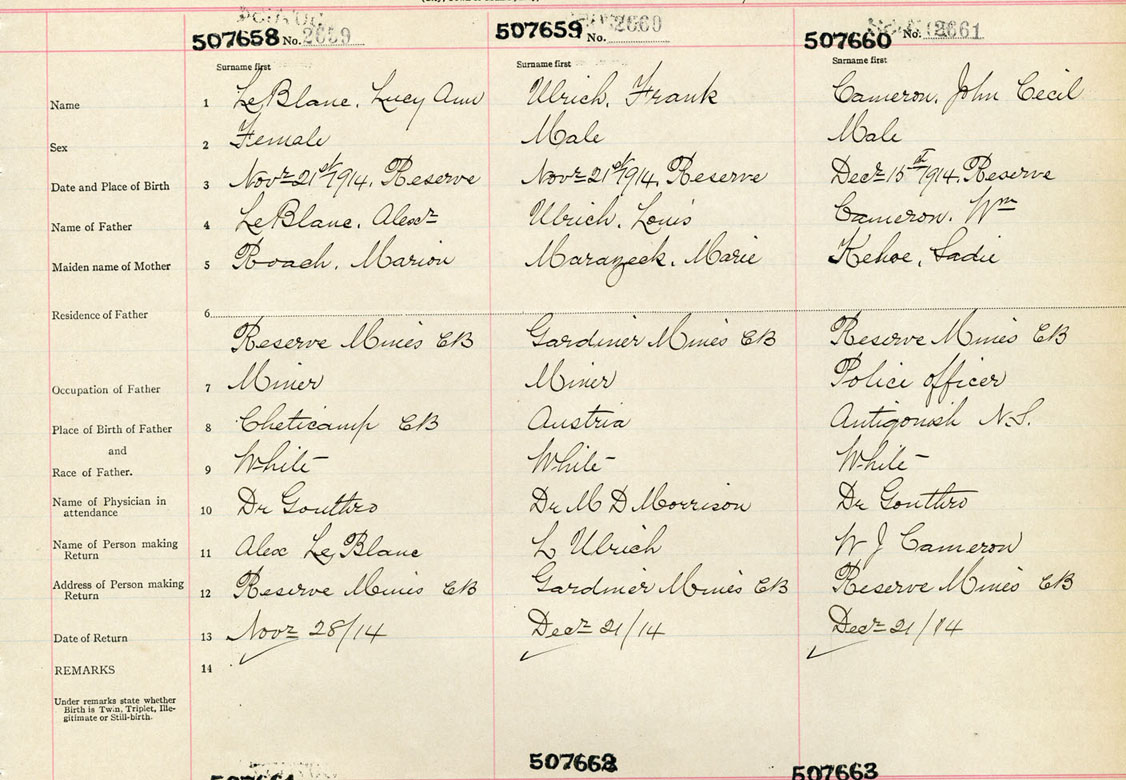 507658 No. 2659 507659 No. 2660 507660 No. 2661
Surname first Surname first Surname first
Name 1 LeBlanc, Lucy Ann Ulrich, Frank Cameron, John Cecil
Sex 2 Female Male Male
Date and Place of Birth 3 Novr 21st 1914, Reserve Novr 21st 1914, Reserve Decr 15th 1914, Reserve
Name of Father 4 LeBlanc, Alexr Ulrich, Louis Cameron, Wm
Maiden name of Mother 5 Roach, Marion Marie Kehoe, Sadie
Residence of Father 6
Reserve Mines CB Gardiner Mines CB Reserve Mines CB
Occupation of Father 7 Miner Miner Police officer
Place of Birth of Father 8 Cheticamp CB Austria Antigonish N.S.
and
Race of Father. 9 White White White
Name of Physician in attendance 10 Dr Gouthro Dr M D Morrison Dr Gouthro
Name of Person making Return 11 Alex LeBlanc L Ulrich W J Cameron
Address of Person making Return 12 Reserve Mines CB Gardiner Mines CB Reserve Mines CB
Date of Return 13 Novr 28/14 Decr 21/14 Decr 21/14
REMARKS 14
Under remarks state whether
Birth is Twin, Triplet, Ille-
gitimate or Still-birth.
507662 507663